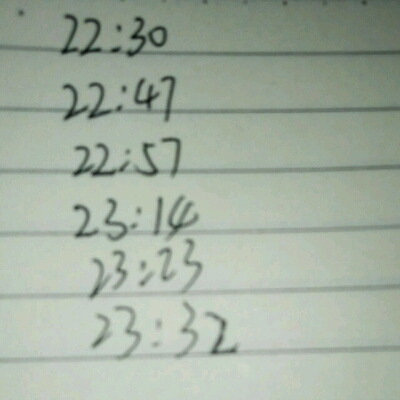 22:30
22:47
22:57
23:14
23:23
23:32